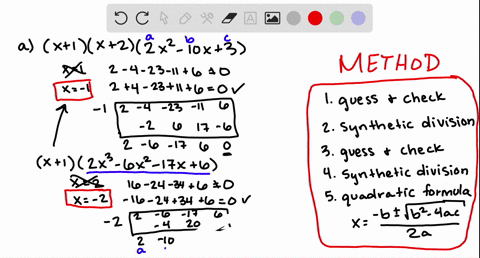 a b c
a) (x+1)(x+2)(2x²-10x+3)
x=1 2-4-23-11+6≠0
x=-1 2+4-23+11+6=0 ✓
-1 2 -4 -23 -11 6
-2 6 17 -6
2 -6 -17 6 0
(x+1)(2x³-6x²-17x+6)
x=2 16-24-34+6≠0
x=-2 -16-24+34+6=0 ✓
-2 2 -6 -17 6
-4 20
2 -10
a
METHOD
1. guess & check
2. synthetic division
3. guess & check
4. synthetic division
5. quadratic formula
x= -b±√b²-4ac
2a